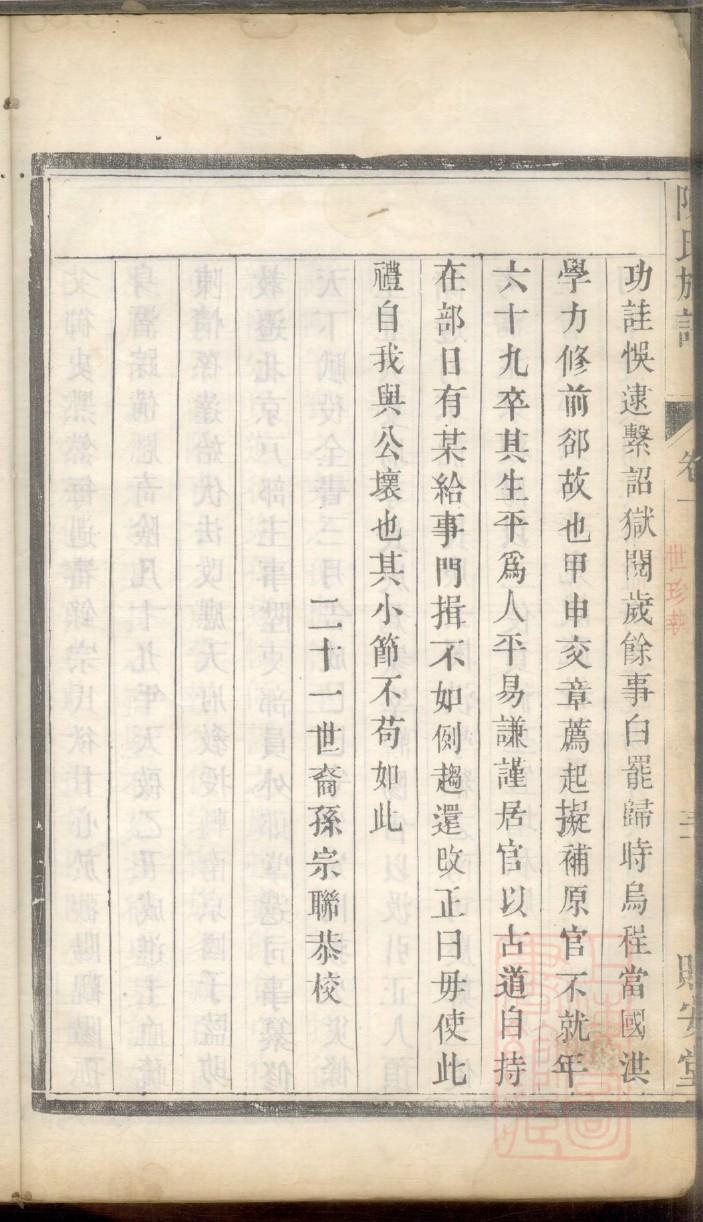 功註悞逮繫詔獄閱歲餘事白罷歸時烏程當國淇
學力修前郤故也甲申交章薦起擬補原官不就年
六十九卒其生平爲人平易謙謹居官以古道自持
在部日有某給事門揖不如側趨還改正曰毋使此
禮自我與公壞也其小節不苟如此
二十一世裔孫宗聯恭校
陳氏族譜
卷一
三
貽安堂